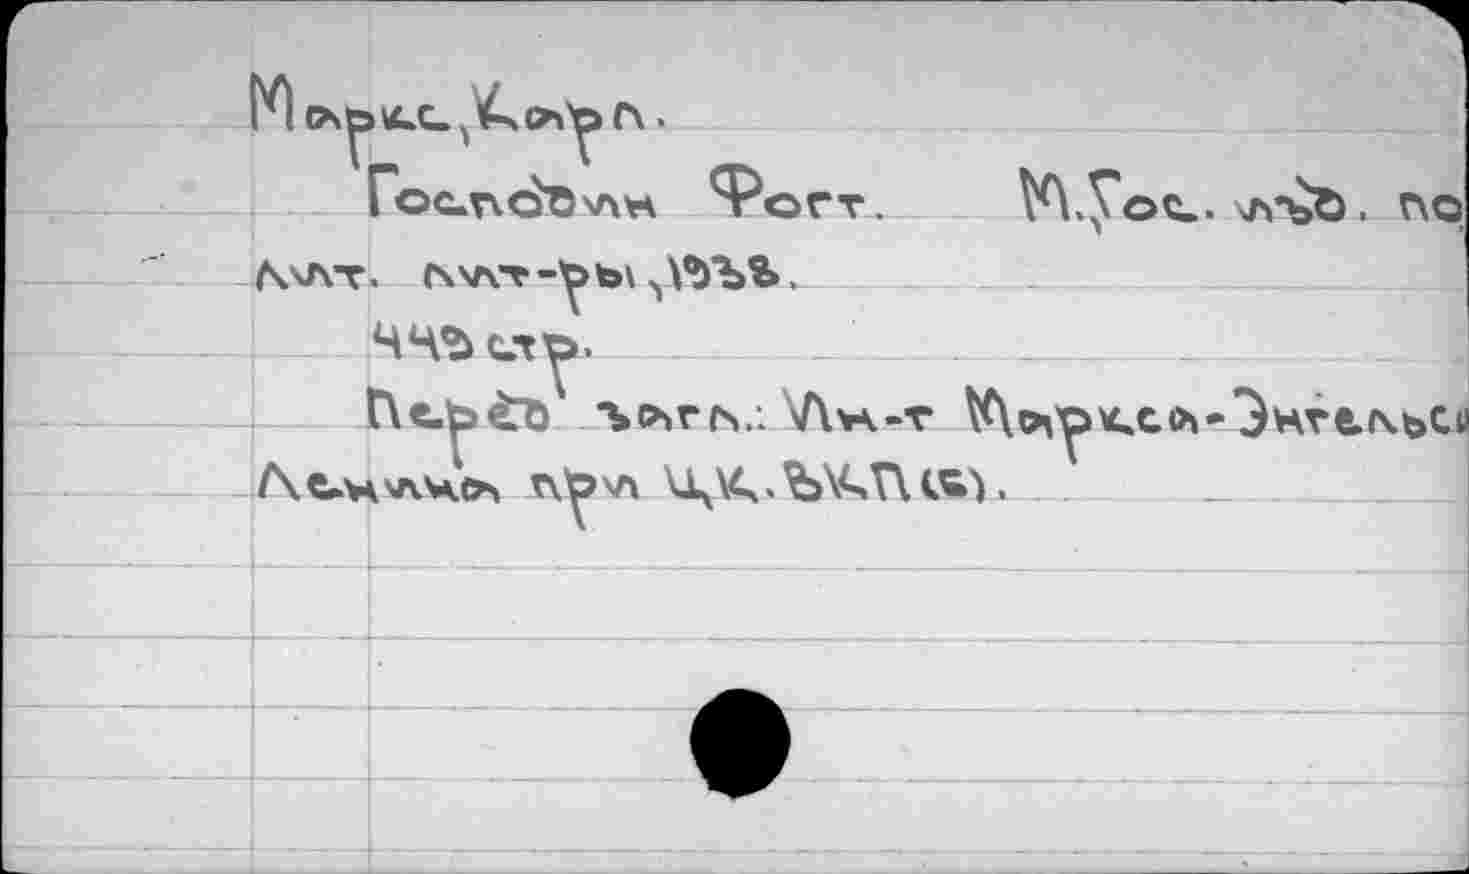 Маркс, Карл.
Господин Фогт. М., Гос. изд. по
лит. лит-ры, 1938.
443 стр.
Перед загл.: Ин-т Маркса-Энгельса
Ленина при ЦК. ВКП(б).